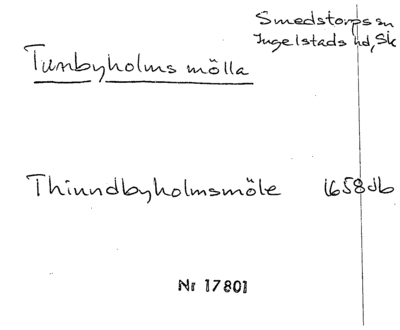 Smedstorps sn
Ingelstads hd, Sk
Tunbyholms mölla
Thinndbyholmsmöle 1658 db
Nr 17801